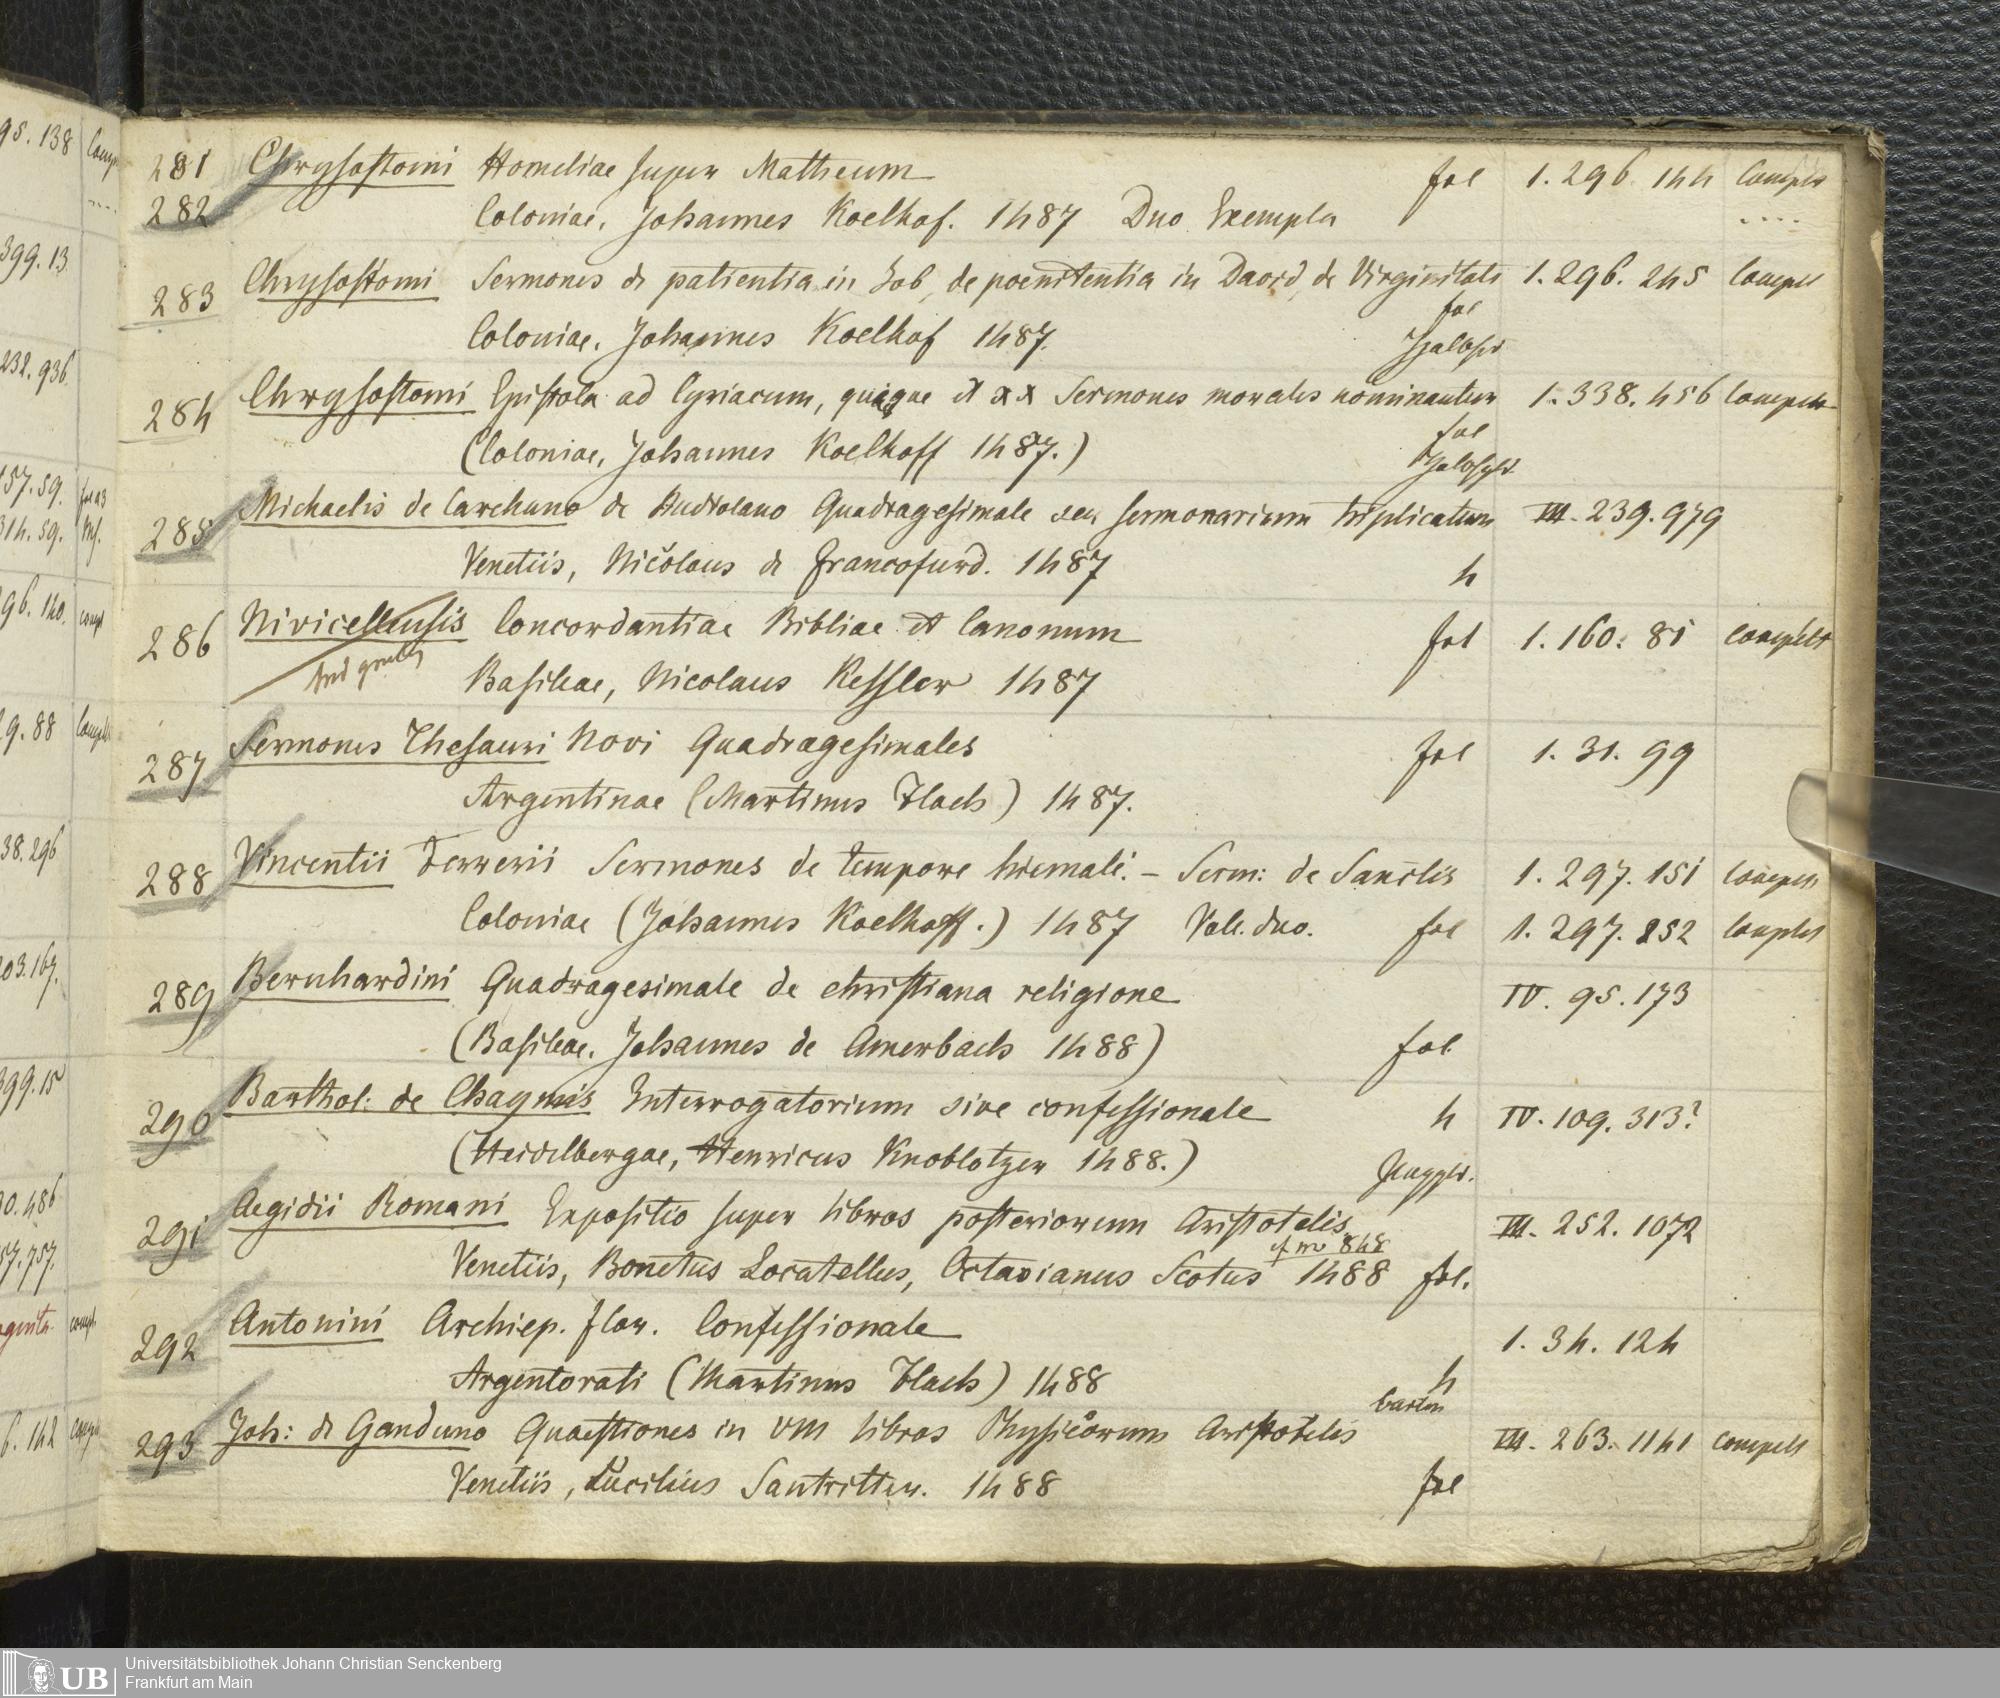 95. 138 Comp
399. 13
232. 936
157. 59.
314. 59.
96. 140. compl
29. 88 Compl
38. 296
203. 167.
399. 15
10. 486
57. 757.
6. 142
281 Chrysostomi Homeliae super Matheum fol 1. 296. 144 Complet
282 Coloniae, Johannes Koelhof. 1487 Duo Exempla ....
283 Chrysostomi Sermones de patientia in Job, de poenitentia in David, de Virginitate 1. 296. 245 Complet
fol
Coloniae, Johannes Koelhof 1487.
284 Chrysostomi Epistola ad Cyriacum, quique et xx Sermones morales nominantur 1. 338. 456 Complet
fol
(Coloniae, Johannes Koelhoff 1487.)
285 Michaelis de Carchano de Mediolano Quadragesimale seu sermonarium triplicatum III. 239. 979
Venetiis, Nicolaus de Francofurd. 1487 4
286 Nivicellensis Concordantiae Bibliae et Canonum fol 1. 160. 81 complet
Basileae, Nicolaus Kessler 1487
287 Sermones Thesauri Novi Quadragesimales fol 1. 31. 99
Argentinae (Martinus Flach) 1487.
288 Vincentii Ferrerii Sermones de tempore hiemali. - Serm: de Sanctis 1. 297. 151 Complet
Coloniae (Johannes Koelhoff.) 1487 Vol. duo. fol 1. 297. 252 Complet
289 Bernhardini Quadragesimale de christiana religione IV. 95. 173
(Basileae, Johannes de Amerbach 1488) fol.
290 Barthol: de Chaymis Interrogatorium sive confessionale 4 IV. 109. 313?
(Heidelbergae, Henricus Knoblotzer 1488.)
291 Aegidii Romani Expositio super libros posteriorum Aristotelis III. 252. 1072
cf no 848
Venetiis, Bonetus Locatellus, Octavianus Scotus 1488 fol.
292 Antonini Archiep. flor. Confessionale 1. 34. 124
Argentorati (Martinus Flach) 1488 4
293 Joh: de Ganduno Quaestiones in VIII libros Physicorum Aristotelis III. 263. 1141 complet
Venetiis, Lucilius Santritter. 1488 fol
UB Universitätsbibliothek Johann Christian Senckenberg
Frankfurt am Main